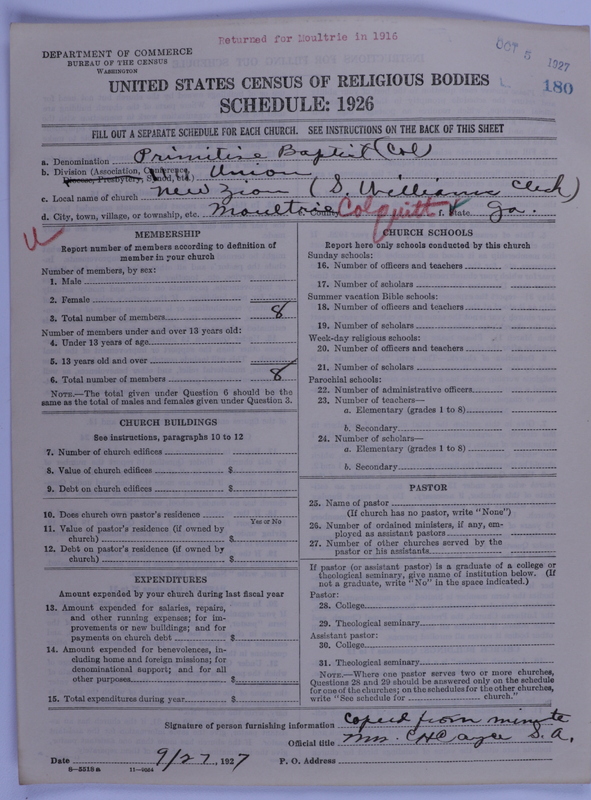 Returned for Moultrie in 1916
OCT 5 1927
180
DEPARTMENT OF COMMERCE
BUREAU OF THE CENSUS
WASHINGTON
UNITED STATES CENSUS OF RELIGIOUS BODIES
SCHEDULE: 1926
FILL OUT A SEPARATE SCHEDULE FOR EACH CHURCH. SEE INSTRUCTIONS ON THE BACK OF THIS SHEET
a. Denomination Primitive Baptist (Col)
b. Division (Association, Conference, Diocese, Presbytery, Synod, etc.) Union
c. Local name of church New Zion (S. Williams Clerk)
d. City, town, village, or township, etc. Moultrie County Colquitt f. State Ga.
MEMBERSHIP
Report number of members according to definition of
member in your church
Number of members, by sex:
1. Male
2. Female
3. Total number of members 8
Number of members under and over 13 years old:
4. Under 13 years of age
5. 13 years old and over
6. Total number of members 8
NOTE.—The total given under Question 6 should be the
same as the total of males and females given under Question 3.
CHURCH BUILDINGS
See instructions, paragraphs 10 to 12
7. Number of church edifices
8. Value of church edifices $
9. Debt on church edifices $
10. Does church own pastor's residence
Yes or No
11. Value of pastor's residence (if owned by
church) $
12. Debt on pastor's residence (if owned by
church) $
EXPENDITURES
Amount expended by your church during last fiscal year
13. Amount expended for salaries, repairs,
and other running expenses; for im-
provements or new buildings; and for
payments on church debt $
14. Amount expended for benevolences, in-
cluding home and foreign missions; for
denominational support; and for all
other purposes $
15. Total expenditures during year $
CHURCH SCHOOLS
Report here only schools conducted by this church
Sunday schools:
16. Number of officers and teachers
17. Number of scholars
Summer vacation Bible schools:
18. Number of officers and teachers
19. Number of scholars
Week-day religious schools:
20. Number of officers and teachers
21. Number of scholars
Parochial schools:
22. Number of administrative officers
23. Number of teachers—
a. Elementary (grades 1 to 8)
b. Secondary
24. Number of scholars—
a. Elementary (grades 1 to 8)
b. Secondary
PASTOR
25. Name of pastor
(If church has no pastor, write "None")
26. Number of ordained ministers, if any, em-
ployed as assistant pastors
27. Number of other churches served by the
pastor or his assistants
If pastor (or assistant pastor) is a graduate of a college or
theological seminary, give name of institution below. (If
not a graduate, write "No" in the space indicated.)
Pastor:
28. College
29. Theological seminary
Assistant pastor:
30. College
31. Theological seminary
NOTE.—Where one pastor serves two or more churches,
Questions 28 and 29 should be answered only on the schedule
for one of the churches; on the schedules for the other churches,
write "See schedule for church."
Signature of person furnishing information Copied from minute
Official title Mrs. C H Cayce S. A.
Date 9/27, 1927 P. O. Address
8—5518a 11—9064